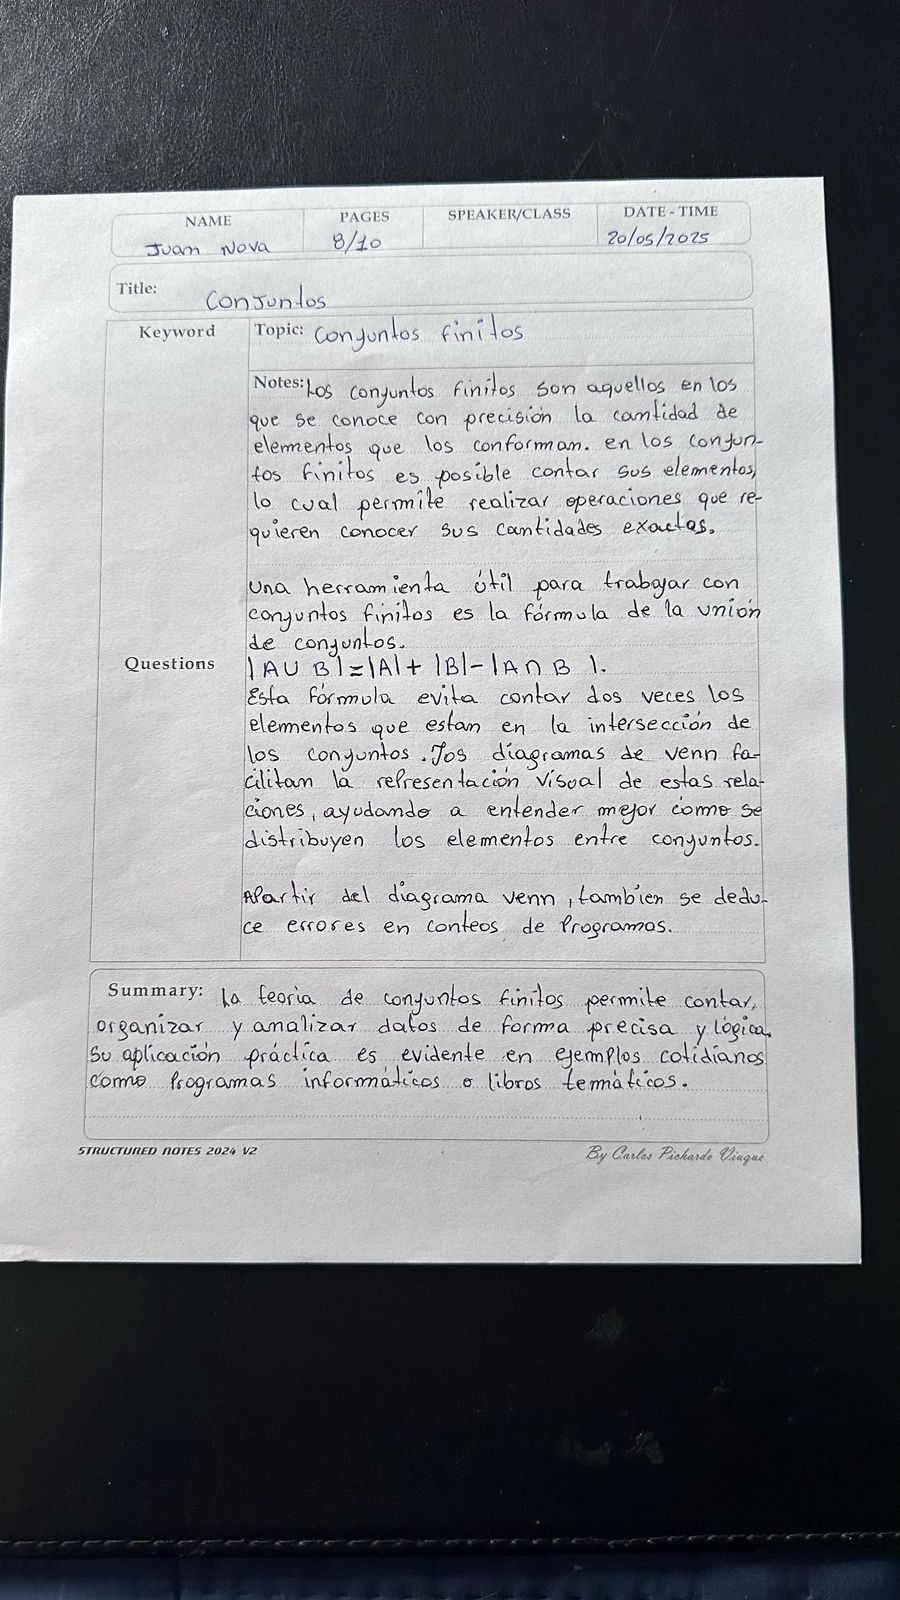 NAME PAGES SPEAKER/CLASS DATE - TIME
Juan Nova 8/10 20/05/2025
Title: Conjuntos
Keyword Topic: Conjuntos finitos
Notes: Los conjuntos finitos son aquellos en los
que se conoce con precisión la cantidad de
elementos que los conforman. en los conjun-
tos finitos es posible contar sus elementos,
lo cual permite realizar operaciones que re-
quieren conocer sus cantidades exactas.
una herramienta útil para trabajar con
conjuntos finitos es la fórmula de la unión
de conjuntos.
Questions |A∪B|=|A|+|B|-|A∩B|.
Esta fórmula evita contar dos veces los
elementos que estan en la intersección de
los conjuntos. Los diagramas de venn fa-
cilitan la representación visual de estas rela-
ciones, ayudando a entender mejor como se
distribuyen los elementos entre conjuntos.
Apartir del diagrama venn, tambien se dedu-
ce errores en conteos de Programas.
Summary: La teoria de conjuntos finitos permite contar,
organizar y analizar datos de forma precisa y lógica.
Su aplicación práctica es evidente en ejemplos cotidianos
como Programas informáticos o libros temáticos.
STRUCTURED NOTES 2024 V2 By Carlos Pichardo Viuque